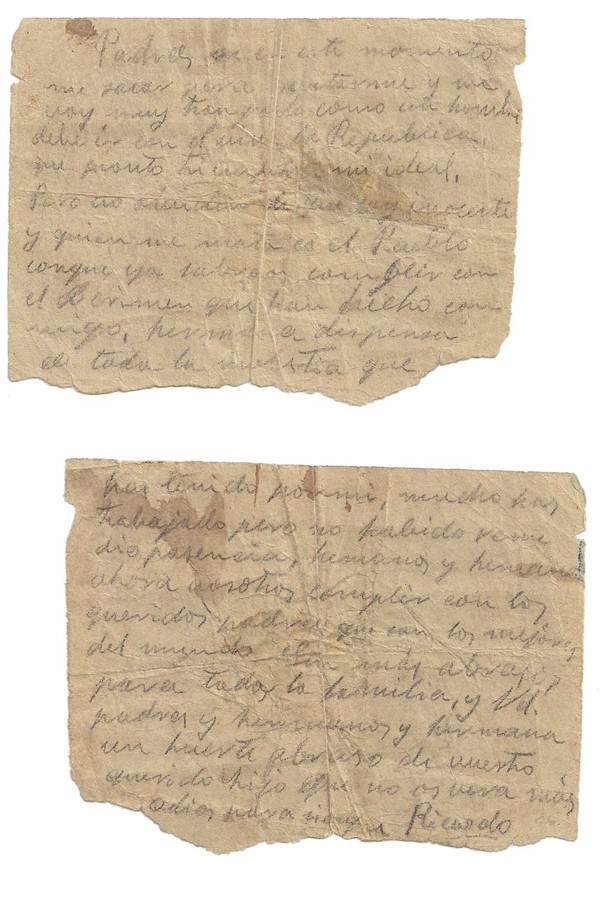 Padres en este momento
me sacar para matarme y me
voy muy tranquilo como un hombre
debe ir con el la Republica,
que pronto mi ideal.
Pero no de que soy inocente
y quien me mata es el Pueblo
conque ya sabran complir con
el Crimen que han hecho con
migo, hermana dispensa
de toda la que
has tenido por mi, mucho has
trabajado pero no habido reme
dio pasencia, hemanos y hemana
ahora vosotros complir con los
queridos padres que son los mejores
del mundo sin más abrazos
para toda la familia, y Vd.
padres y hermanos y hermana
un huerte abraso de vuestro
querido hijo que no os vera más
adios para siempre Ricardo